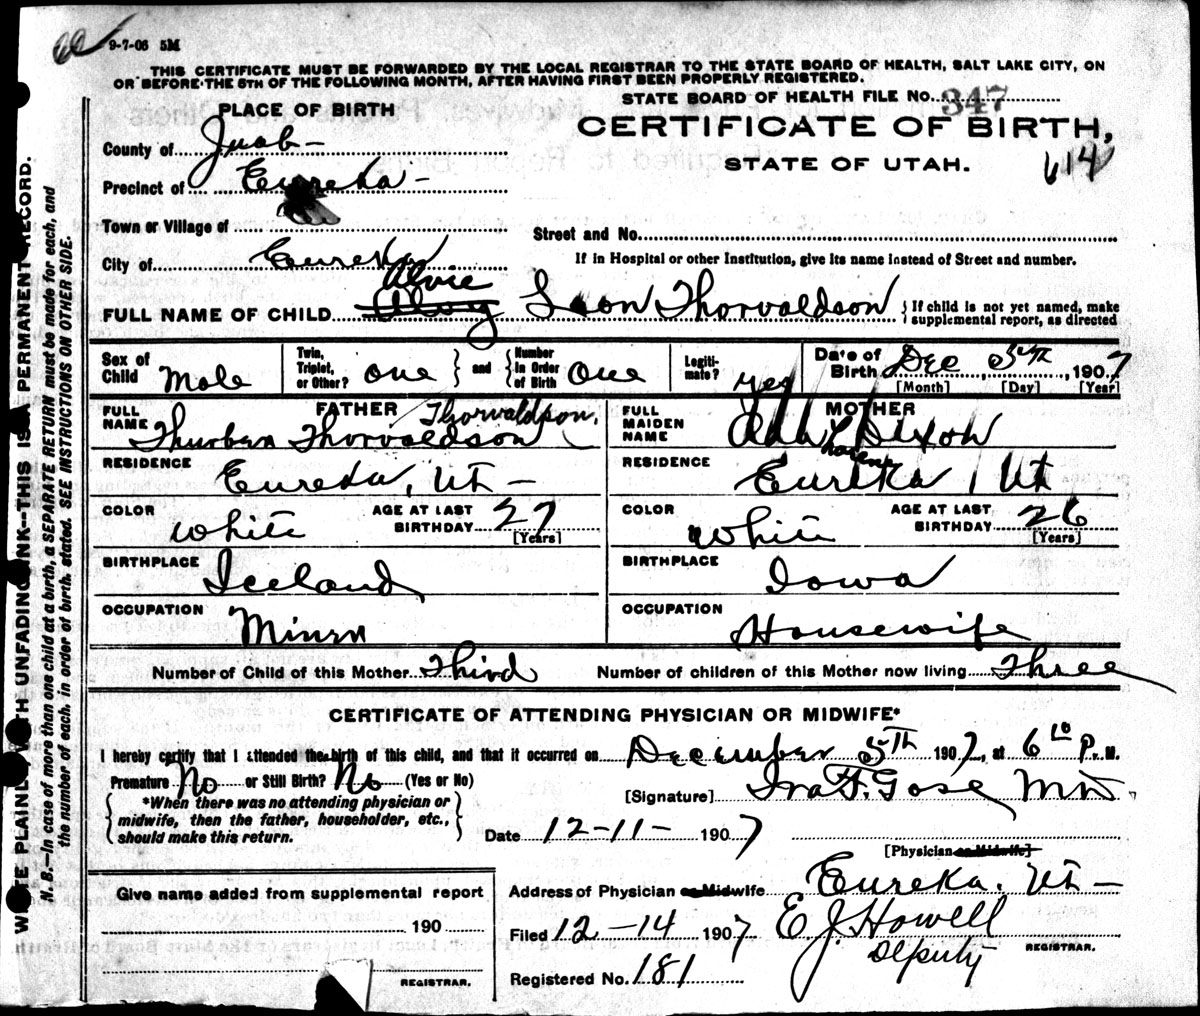 9-7-06 5M
THIS CERTIFICATE MUST BE FORWARDED BY THE LOCAL REGISTRAR TO THE STATE BOARD OF HEALTH, SALT LAKE CITY, ON
OR BEFORE THE 5TH OF THE FOLLOWING MONTH, AFTER HAVING FIRST BEEN PROPERLY REGISTERED.
STATE BOARD OF HEALTH FILE NO. 347
PLACE OF BIRTH
CERTIFICATE OF BIRTH,
STATE OF UTAH.
614
County of Juab-
Precinct of Eureka-
Town or Village of
Street and No.
City of Eureka
If in Hospital or other Institution, give its name instead of Street and number.
Alvie
FULL NAME OF CHILD Leon Thorvaldson
{If child is not yet named, make
supplemental report, as directed
Sex of Child Male
Twin, Triplet, or Other? one } and { Number In Order of Birth One
Legitimate? yes
Date of Birth Dec 5TH, 1907
[Month] [Day] [Year]
FATHER
FULL NAME Thorvaldson.
Thurben Thorvaldson
RESIDENCE Eureka, Ut-
COLOR White
AGE AT LAST BIRTHDAY 27
[Years]
BIRTHPLACE Iceland
OCCUPATION Miner
MOTHER
FULL MAIDEN NAME Dixon
RESIDENCE Eureka, Ut
COLOR White
AGE AT LAST BIRTHDAY 26
[Years]
BIRTHPLACE Iowa
OCCUPATION Housewife
Number of Child of this Mother Third
Number of children of this Mother now living Three
CERTIFICATE OF ATTENDING PHYSICIAN OR MIDWIFE*
I hereby certify that I attended the birth of this child, and that it occurred on December 5TH 1907, at 6 10 P. M.
Premature No or Still Birth? No (Yes or No)
[Signature] Ira F. Gose MD
{*When there was no attending physician or
midwife, then the father, householder, etc.,
should make this return.}
Date 12-11- 1907
[Physician or Midwife]
Give name added from supplemental report
190
REGISTRAR.
Address of Physician or Midwife Eureka. Ut-
Filed 12-14 1907 E J. Howell
Deputy REGISTRAR.
Registered No. 181
WRITE PLAINLY, WITH UNFADING INK--THIS IS A PERMANENT RECORD.
N. B.--In case of more than one child at a birth, a SEPARATE RETURN must be made for each, and
the number of each, in order of birth, stated. SEE INSTRUCTIONS ON OTHER SIDE.